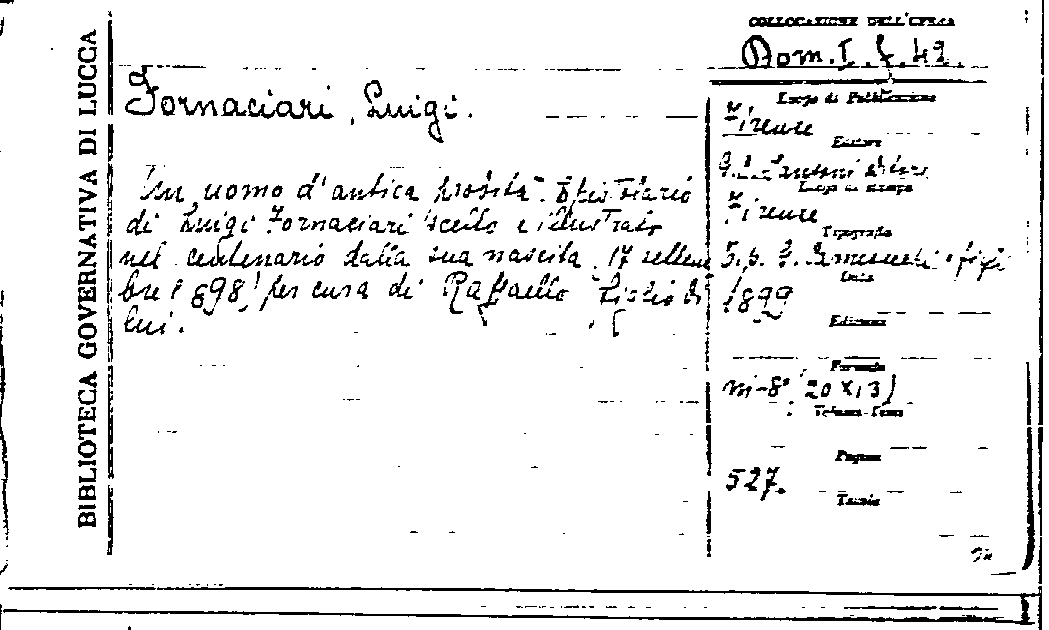 BIBLIOTECA GOVERNATIVA DI LUCCA
COLLOCAZIONE DELL'OPERA
Dom. I. f. 42.
Fornaciari, Luigi.
Un uomo d'antica probità. Epistolario
di Luigi Fornaciari scelto e illustrato
nel centenario dalla sua nascita (17 settem
bre 1898) per cura di Raffaello figlio di
lui.
Luogo di Pubblicazione
Firenze
Editore
G. C. Sansoni
Luogo di stampa
Firenze
Tipografia
figli
Data
1899
Edizione
Formato
in-8° (20 x 13)
Volumi-Tomi
Pagine
527.
Tavole